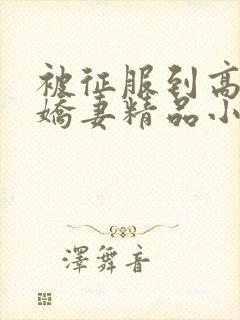 被征服到高
嬌妻精品小
澤舞音